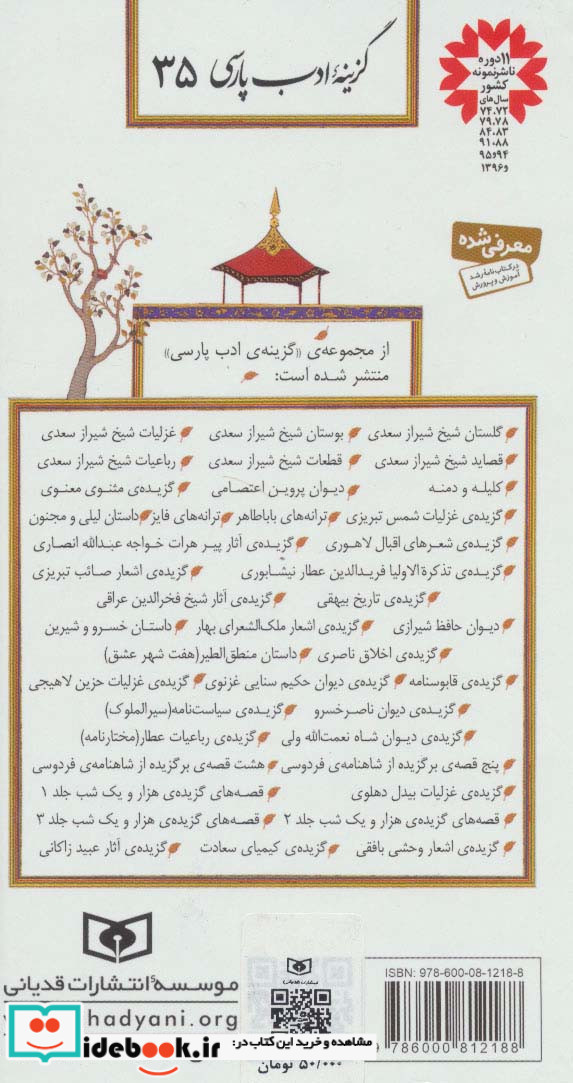 گزینهٔ ادب پارسی ۳۵
۱۱ دوره
ناشر نمونه
کشور
سال‌های
۷۴،۷۲
۷۹،۷۸
۸۴،۸۳
۹۱،۸۸
۹۴و۹۵
و۱۳۹۶
معرفی شده
در کتاب‌نامه رشد
آموزش و پرورش
از مجموعه‌ی «گزینه‌ی ادب پارسی»
منتشر شده است:
گلستان شیخ شیراز سعدی بوستان شیخ شیراز سعدی غزلیات شیخ شیراز سعدی
قصاید شیخ شیراز سعدی قطعات شیخ شیراز سعدی رباعیات شیخ شیراز سعدی
کلیله و دمنه دیوان پروین اعتصامی گزیده‌ی مثنوی معنوی
گزیده‌ی غزلیات شمس تبریزی ترانه‌های باباطاهر ترانه‌های فایز داستان لیلی و مجنون
گزیده‌ی شعرهای اقبال لاهوری گزیده‌ی آثار پیر هرات خواجه عبدالله انصاری
گزیده‌ی تذکرة الاولیا فریدالدین عطار نیشابوری گزیده‌ی اشعار صائب تبریزی
گزیده‌ی تاریخ بیهقی گزیده‌ی آثار شیخ فخرالدین عراقی
دیوان حافظ شیرازی گزیده‌ی اشعار ملک‌الشعرای بهار داستان خسرو و شیرین
گزیده‌ی اخلاق ناصری داستان منطق‌الطیر(هفت شهر عشق)
گزیده‌ی قابوسنامه گزیده‌ی دیوان حکیم سنایی غزنوی گزیده‌ی غزلیات حزین لاهیجی
گزیده‌ی دیوان ناصرخسرو گزیده‌ی سیاست‌نامه(سیرالملوک)
گزیده‌ی دیوان شاه نعمت‌الله ولی گزیده‌ی رباعیات عطار(مختارنامه)
پنج قصه‌ی برگزیده از شاهنامه‌ی فردوسی هشت قصه‌ی برگزیده از شاهنامه‌ی فردوسی
گزیده‌ی غزلیات بیدل دهلوی قصه‌های گزیده‌ی هزار و یک شب جلد ۱
قصه‌های گزیده‌ی هزار و یک شب جلد ۲ قصه‌های گزیده‌ی هزار و یک شب جلد ۳
گزیده‌ی اشعار وحشی بافقی گزیده‌ی کیمیای سعادت گزیده‌ی آثار عبید زاکانی
موسسهٔ انتشارات قدیانی
hadyani.org
انتشارات قدیانی
ISBN: 978-600-08-1218-8
9 786000 812188
مشاهده و خرید این کتاب در:
idebook.ir
۵۰/۰۰۰ تومان